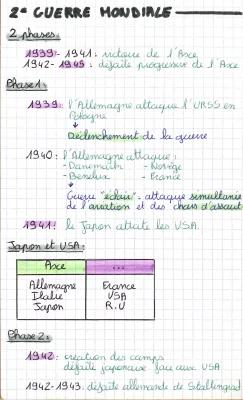 2e GUERRE MONDIALE
2 phases:
1939 - 1941: victoire de l'Axe
1942 - 1945: défaite progressive de l'Axe
Phase 1:
1939: l'Allemagne attaque l'URSS en
Pologne
↓
Déclenchement de la guerre
1940: l'Allemagne attaque:
- Danemark - Norvège
- Benelux - France
↓
Guerre "éclair": attaque simultanée
de l'aviation et des chars d'assaut
1941: le Japon attaque les USA
Japon et USA:
Axe ...
Allemagne France
Italie USA
Japon R.U
Phase 2:
1942: création des camps
défaite japonaise face aux USA
1942-1943: défaite allemande de Stalingrad